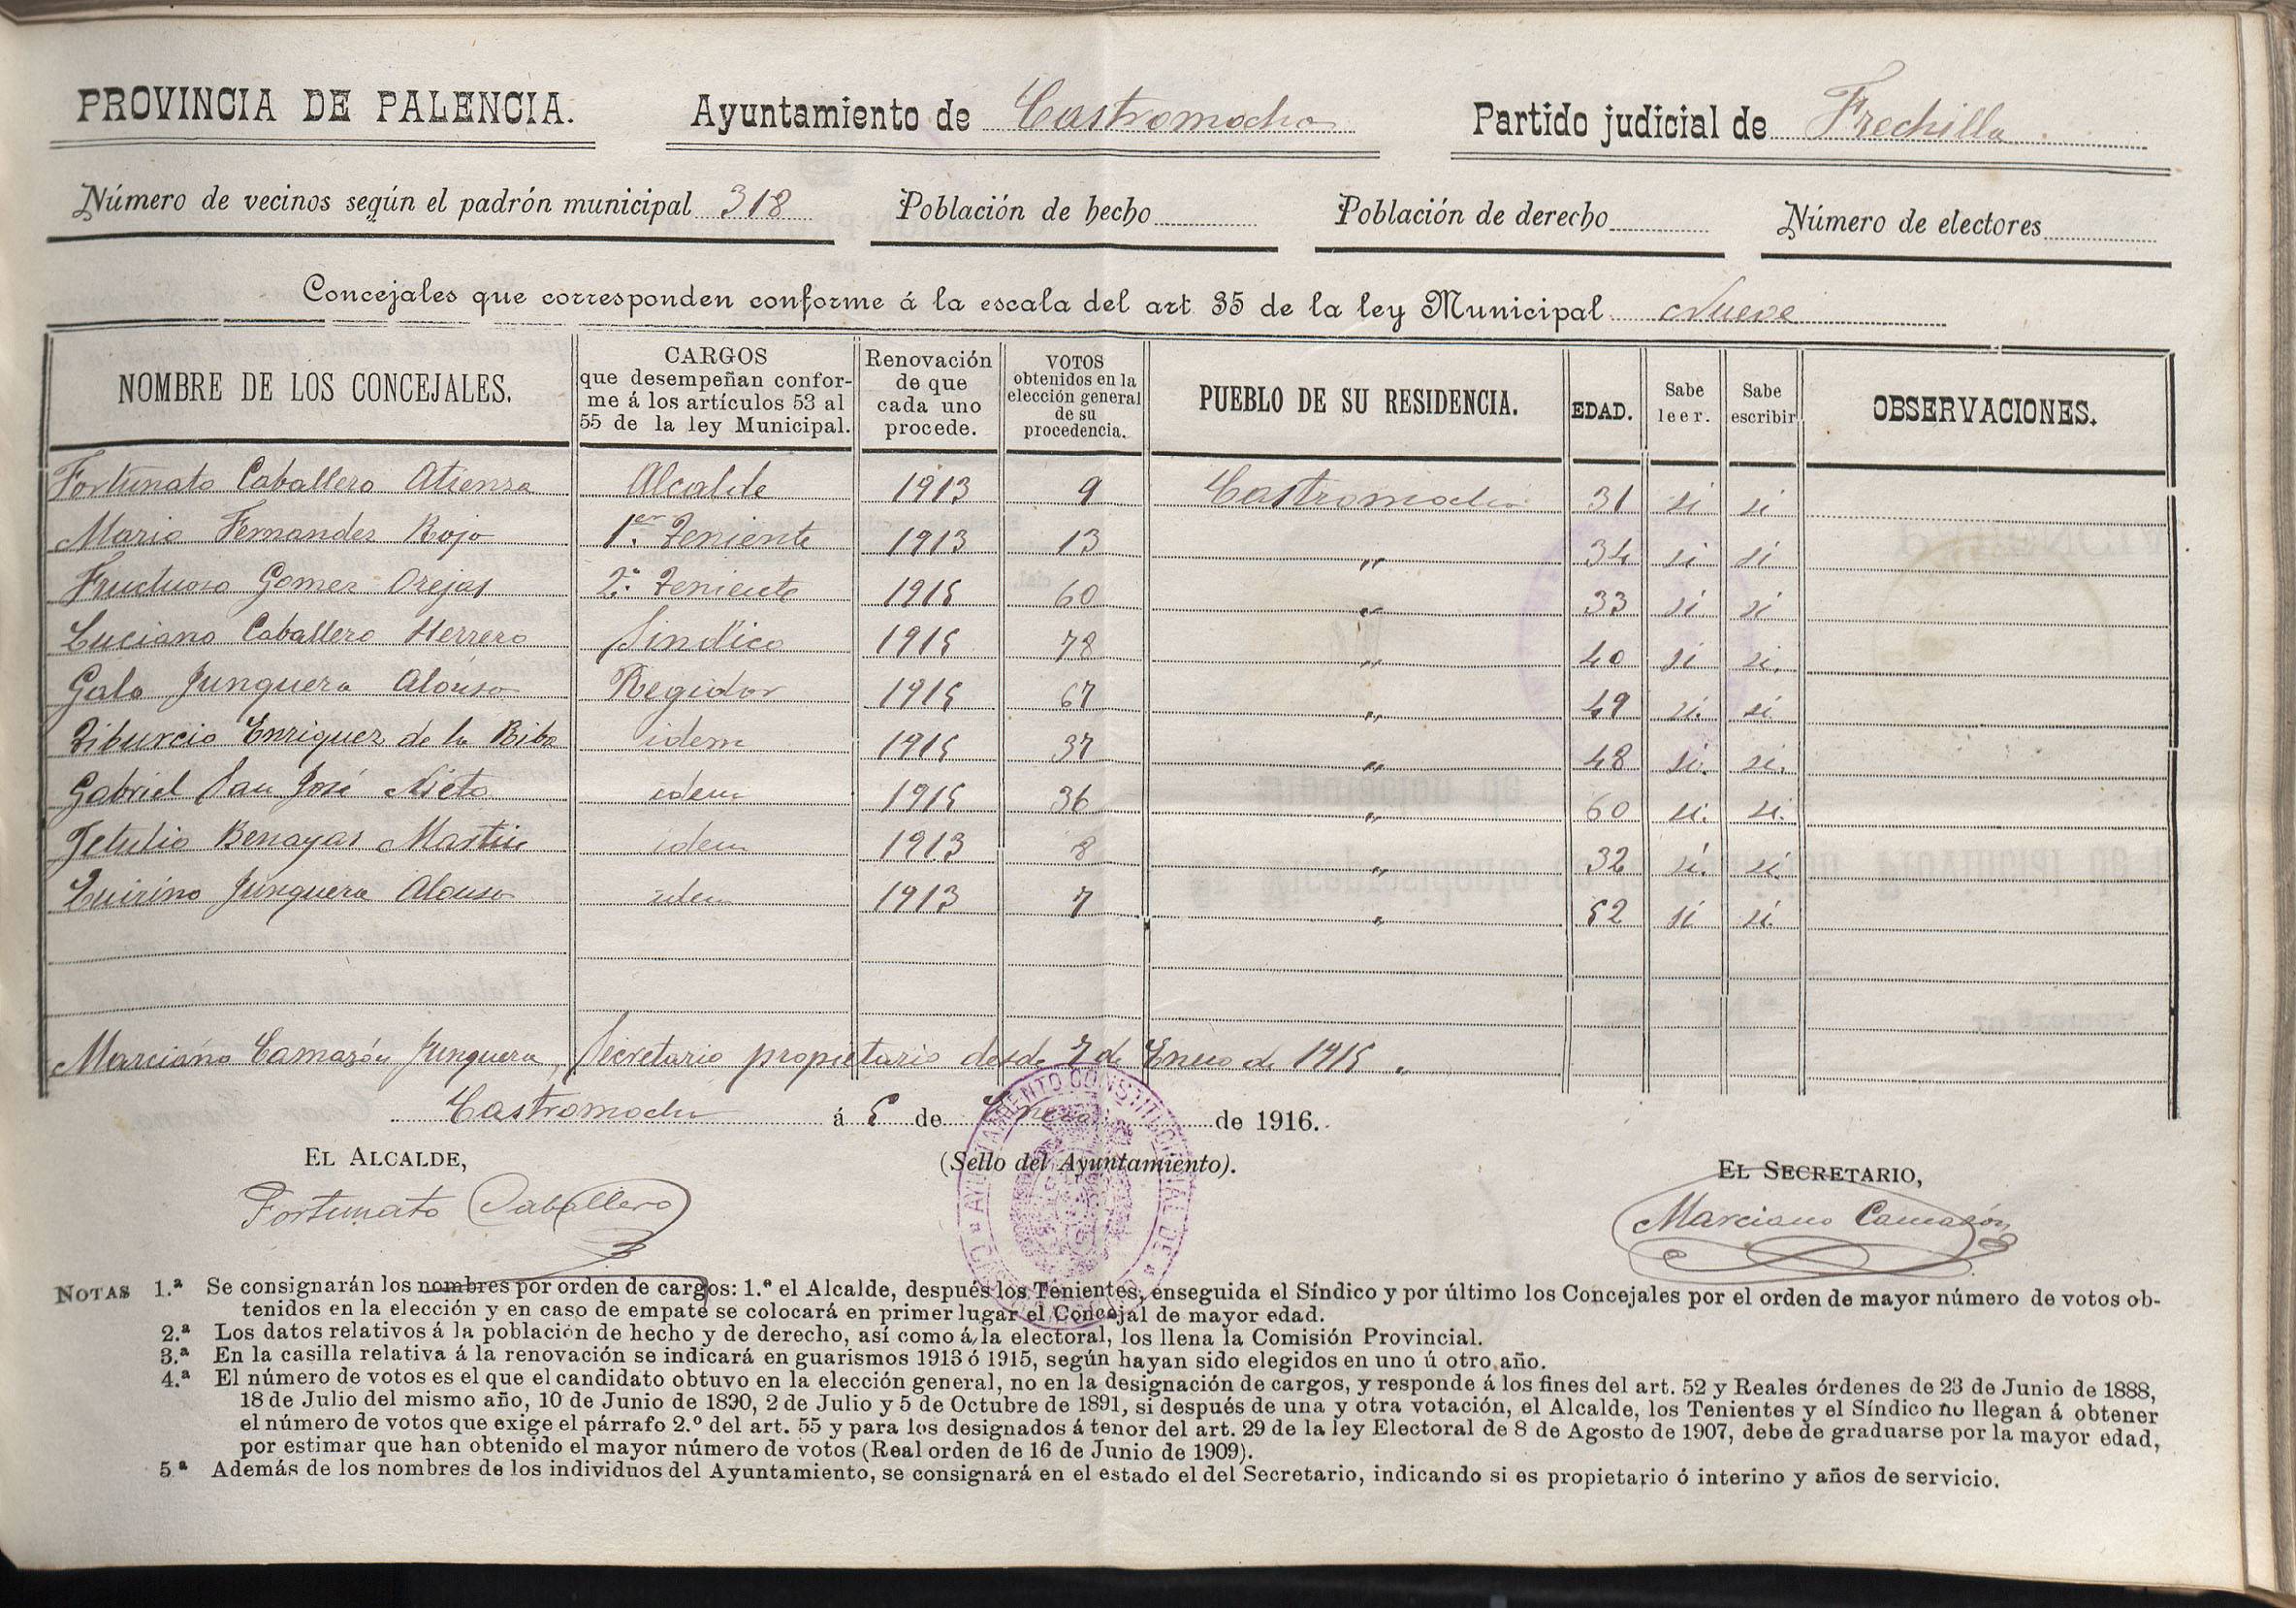 PROVINCIA DE PALENCIA. Ayuntamiento de Castromocho Partido judicial de Frechilla
Número de vecinos según el padrón municipal 318 Población de hecho Población de derecho Número de electores
Concejales que corresponden conforme á la escala del art 35 de la ley Municipal Nueve
NOMBRE DE LOS CONCEJALES. CARGOS que desempeñan confor- me á los artículos 53 al 55 de la ley Municipal. Renovación de que cada uno procede. VOTOS obtenidos en la elección general de su procedencia. PUEBLO DE SU RESIDENCIA. EDAD. Sabe leer. Sabe escribir OBSERVACIONES.
Fortunato Caballero Atienza Alcalde 1913 9 Castromocho 31 si si
Mario Fernandez Rojo 1.er Teniente 1913 13 " 34 si si
Fructuoso Gomez Orejas 2.º Teniente 1915 60 " 33 si si
Luciano Caballero Herrero Sindico 1915 78 " 40 si si.
Galo Junquera Alonso Regidor 1915 67 " 49 si. si
Tiburcio Enriquez de la Riba idem 1915 37 " 48 si. si.
Gabriel San José Nieto idem 1915 36 " 60 si. si.
Getulio Benayas Martin idem 1913 8 " 32 si. si.
Quirino Junquera Alonso idem 1913 7 " 52 si si.
Marciano Camazón Junquera, Secretario propietario desde 7 de Enero de 1915.
Castromocho á 5 de Enero de 1916.
EL ALCALDE, (Sello del Ayuntamiento). EL SECRETARIO,
AYUNTAMIENTO CONSTITUCIONAL DE
Fortunato Caballero Marciano Camazón
NOTAS 1.ª Se consignarán los nombres por orden de cargos: 1.º el Alcalde, después los Tenientes, enseguida el Síndico y por último los Concejales por el orden de mayor número de votos ob-
tenidos en la elección y en caso de empate se colocará en primer lugar el Concejal de mayor edad.
2.ª Los datos relativos á la población de hecho y de derecho, así como á la electoral, los llena la Comisión Provincial.
3.ª En la casilla relativa á la renovación se indicará en guarismos 1913 ó 1915, según hayan sido elegidos en uno ú otro año.
4.ª El número de votos es el que el candidato obtuvo en la elección general, no en la designación de cargos, y responde á los fines del art. 52 y Reales órdenes de 23 de Junio de 1888,
18 de Julio del mismo año, 10 de Junio de 1890, 2 de Julio y 5 de Octubre de 1891, si después de una y otra votación, el Alcalde, los Tenientes y el Síndico no llegan á obtener
el número de votos que exige el párrafo 2.º del art. 55 y para los designados á tenor del art. 29 de la ley Electoral de 8 de Agosto de 1907, debe de graduarse por la mayor edad,
por estimar que han obtenido el mayor número de votos (Real orden de 16 de Junio de 1909).
5ª Además de los nombres de los individuos del Ayuntamiento, se consignará en el estado el del Secretario, indicando si es propietario ó interino y años de servicio.